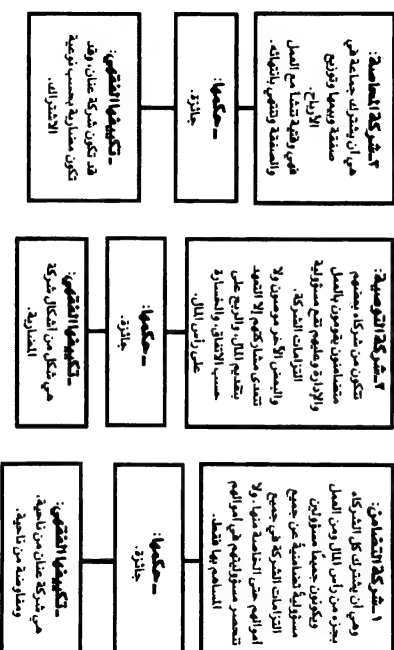 ١- شركة التضامن:
وهي أن يشترك كل الشركاء
بجزء من رأس المال ومن العمل
ويكونون جميعًا مسؤولين
مسؤولية تضامنية عن جميع
التزامات الشركة في جميع
أموالهم حتى الخاصة منها. ولا
تنحصر مسؤوليتهم في أموالهم
المساهم بها فقط.
- حكمها:
جائزة.
- تكييفها الفقهي:
هي شركة عنان من ناحية،
ومفاوضة من ناحية.
٢- شركة التوصية:
تتكون من شركاء بعضهم
متضامنون يقومون بالعمل
والإدارة وعليهم تقع مسؤولية
التزامات الشركة.
والبعض الآخر موصون ولا
تتعدى مشاركتهم إلا التعهد
بتقديم المال، والربح على
حسب الاتفاق، والخسارة
على رأس المال.
- حكمها:
جائزة.
- تكييفها الفقهي:
هي شكل من أشكال شركة
المضاربة.
٣- شركة المحاصة:
هي أن يشترك جماعة في
صفقة وبيعها وتوزيع
الأرباح.
فهي وقتية تنشأ مع العمل
والصفقة وتنتهي بانتهائه.
- حكمها:
جائزة.
- تكييفها الفقهي:
قد تكون شركة عنان، وقد
تكون مضاربة بحسب نوعية
الاشتراك.